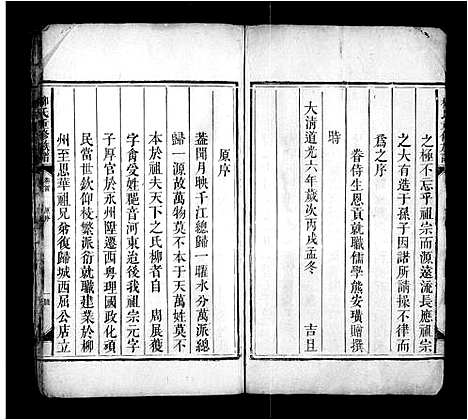 之極不忘乎祖宗而源遠流長應祖宗
之大有造于孫子因諸所請操不律而
為之序
眷侍生恩貢就職儒學熊安璜贈撰
時
大清道光六年歲次丙戌孟冬 吉旦
原序
蓋聞月映千江總歸一躔水分萬派總
歸一源故萬物莫不本於天萬姓莫不
本於祖夫天下之氏柳者自 周展獲
字禽受姓逓音河東我祖宗元字
子厚官於永州陞遷西粤理國政化頑
民當世欽仰枝繁派衍就職建業於柳
州至思華祖兄弟復歸城西屈公店立